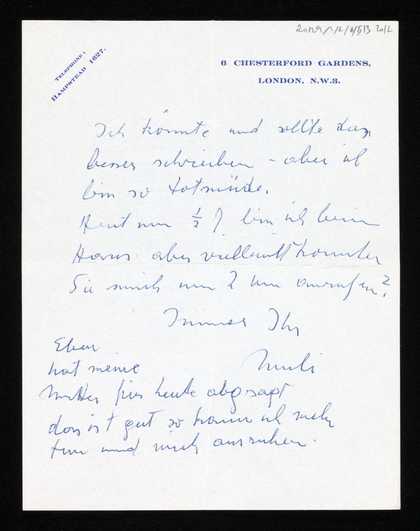 TELEPHONE,
HAMPSTEAD 1627.
6 CHESTERFORD GARDENS,
LONDON, N.W.3.
Ich könnte und sollte das
besser schreiben - aber ich
bin so totmüde.
Heut um ½ 7 bin ich beim
Hans aber vielleicht könnten
Sie mich um 2 Uhr anrufen?
Immer Ihr
Eben
hat meine
Mutter für heute abgesagt
das ist gut so kann ich mehr
tun und mich ausruhen.